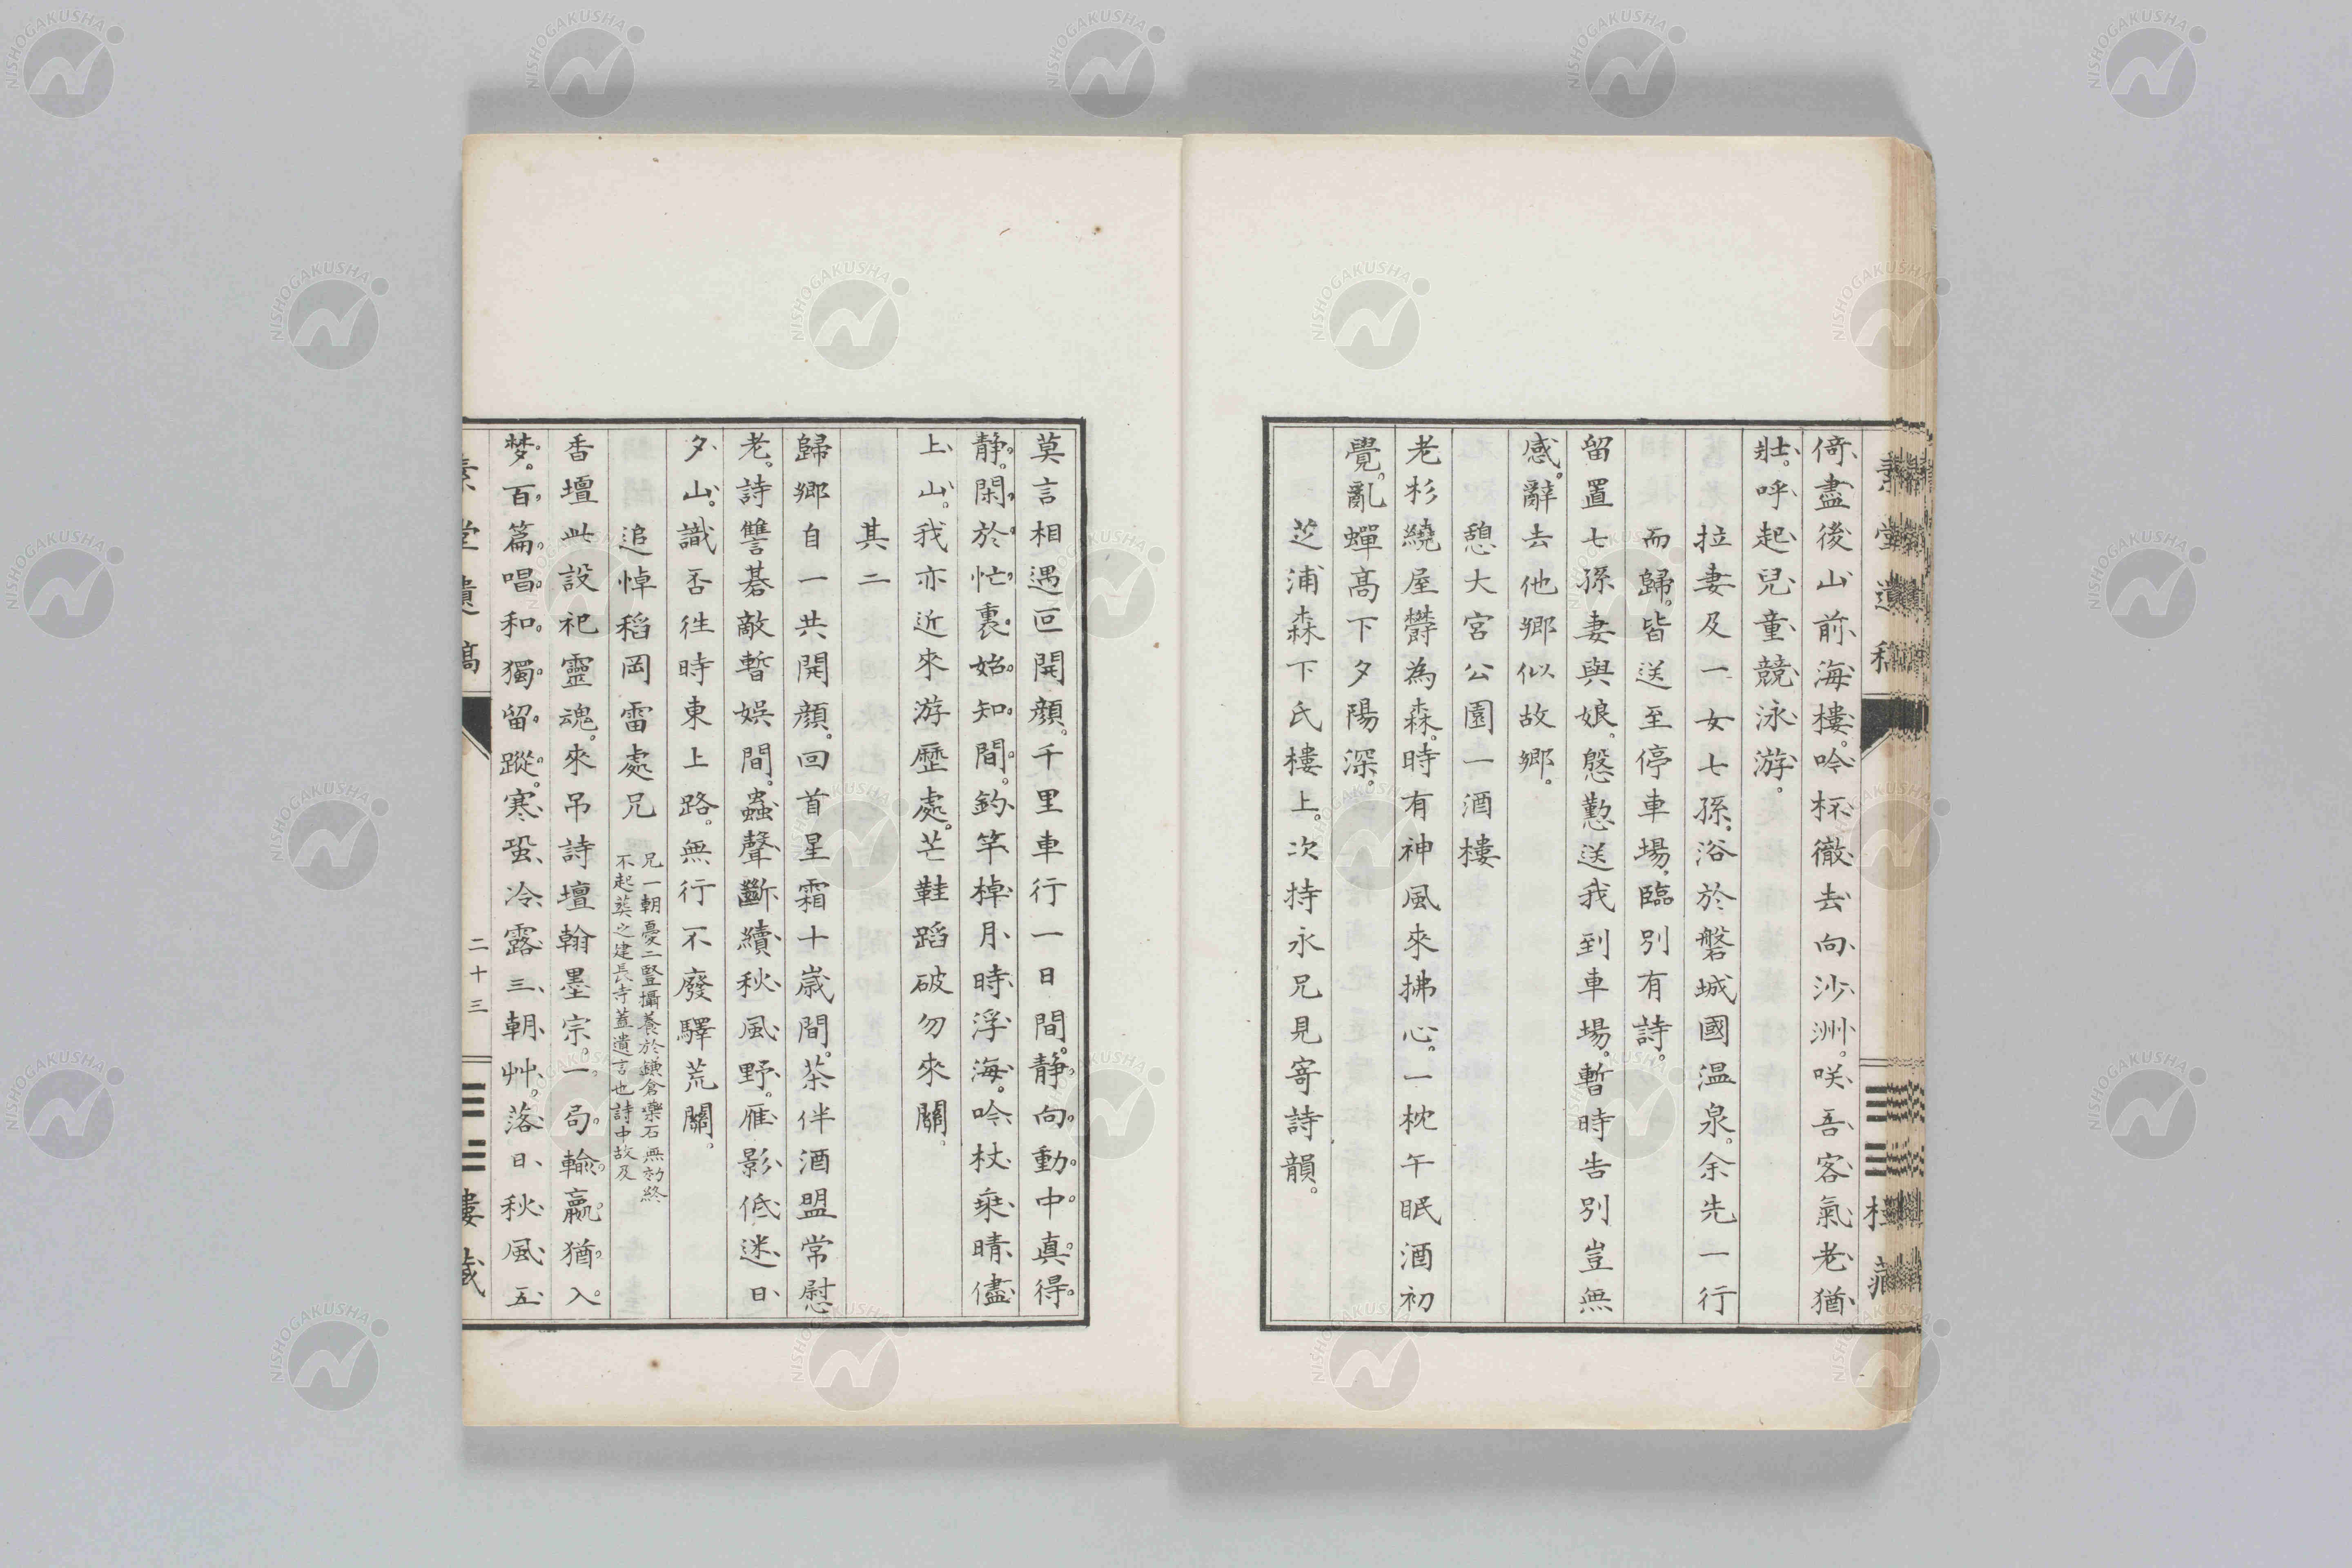 倚盡後山前海樓。吟杯徹去向沙洲。咲吾客氣老猶
壯。呼起兒童競泳游。
拉妻及一女七孫浴於磐城國温泉。余先一行
而歸。皆送至停車場。臨別有詩。
留置七孫妻與娘。慇懃送我到車場。暫時告別豈無
感。辭去他鄉似故鄉。
憩大宮公園一酒樓
老杉繞屋欝為森。時有神風來拂心。一枕午眠酒初
覺。亂蟬高下夕陽深。
芝浦森下氏樓上。次持永兄見寄詩韻。
莫言相遇叵開顔。千里車行一日間。静向動中真得
静。閑於忙裏始知間。釣竿棹月時浮海。吟杖乗晴儘
上山。我亦近來游歷處。芒鞋蹈破勿來關。
其二
歸鄉自一共開顔。回首星霜十歳間。茶伴酒盟常慰
老。詩讐碁敵暫娯間。蟲聲斷續秋風野。雁影低迷日
夕山。識否徃時東上路。無行不廢驛荒關。
追悼稻岡雷處兄
兄一朝憂二豎攝養於鎌倉藥石無効終
不起葵之建長寺蓋遺言也詩中故及
香壇此設祀靈魂。來吊詩壇翰墨宗。一局輸贏猶入
梦。百篇唱和獨留蹤。寒蛩冷露三朝艸。落日秋風五
素堂遺稿
二十三
樓藏
NISHOGAKUSHA